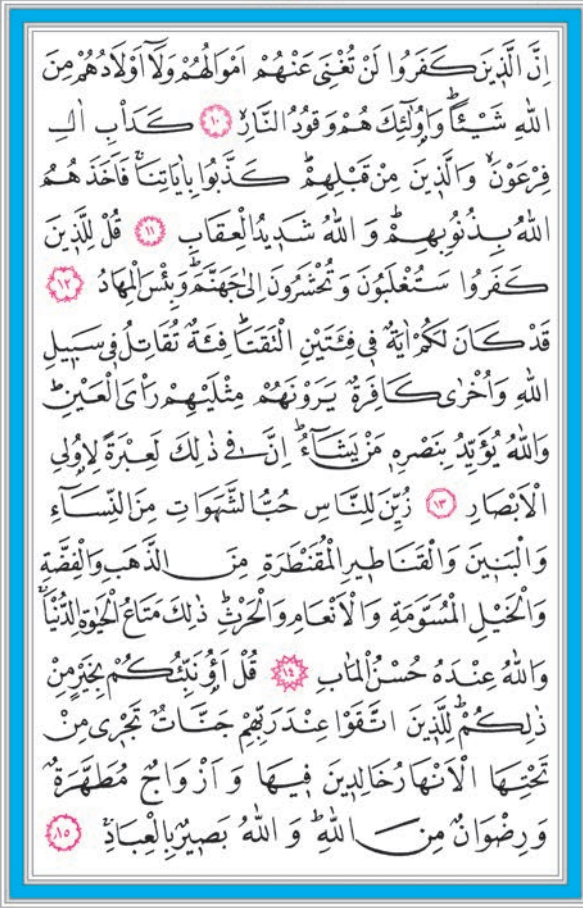 اِنَّ الَّذٖينَ كَفَرُوا لَنْ تُغْنِيَ عَنْهُمْ اَمْوَالُهُمْ وَلَٓا اَوْلَادُهُمْ مِنَ
اللّٰهِ شَيْـٔاًؕ وَاُو۬لٰٓئِكَ هُمْ وَقُودُ النَّارِۙ ﴿١٠﴾ كَدَأْبِ اٰلِ
فِرْعَوْنَۙ وَالَّذٖينَ مِنْ قَبْلِهِمْؕ كَذَّبُوا بِاٰيَاتِنَاۚ فَاَخَذَهُمُ
اللّٰهُ بِذُنُوبِهِمْؕ وَاللّٰهُ شَدٖيدُ الْعِقَابِ ﴿١١﴾ قُلْ لِلَّذٖينَ
كَفَرُوا سَتُغْلَبُونَ وَتُحْشَرُونَ اِلٰى جَهَنَّمَؕ وَبِئْسَ الْمِهَادُ ﴿١٢﴾
قَدْ كَانَ لَكُمْ اٰيَةٌ فٖي فِئَتَيْنِ الْتَقَتَاؕ فِئَةٌ تُقَاتِلُ فٖي سَبٖيلِ
اللّٰهِ وَاُخْرٰى كَافِرَةٌ يَرَوْنَهُمْ مِثْلَيْهِمْ رَأْيَ الْعَيْنِؕ
وَاللّٰهُ يُؤَيِّدُ بِنَصْرِهٖ مَنْ يَشَٓاءُؕ اِنَّ فٖي ذٰلِكَ لَعِبْرَةً لِاُو۬لِي
الْاَبْصَارِ ﴿١٣﴾ زُيِّنَ لِلنَّاسِ حُبُّ الشَّهَوَاتِ مِنَ النِّسَٓاءِ
وَالْبَنٖينَ وَالْقَنَاطٖيرِ الْمُقَنْطَرَةِ مِنَ الذَّهَبِ وَالْفِضَّةِ
وَالْخَيْلِ الْمُسَوَّمَةِ وَالْاَنْعَامِ وَالْحَرْثِؕ ذٰلِكَ مَتَاعُ الْحَيٰوةِ الدُّنْيَاۚ
وَاللّٰهُ عِنْدَهُ حُسْنُ الْمَاٰبِ ﴿١٤﴾ قُلْ اَؤُنَبِّئُكُمْ بِخَيْرٍ مِنْ
ذٰلِكُمْؕ لِلَّذٖينَ اتَّقَوْا عِنْدَ رَبِّهِمْ جَنَّاتٌ تَجْرٖي مِنْ
تَحْتِهَا الْاَنْهَارُ خَالِدٖينَ فٖيهَا وَاَزْوَاجٌ مُطَهَّرَةٌ
وَرِضْوَانٌ مِنَ اللّٰهِؕ وَاللّٰهُ بَصٖيرٌ بِالْعِبَادِۚ ﴿١٥﴾